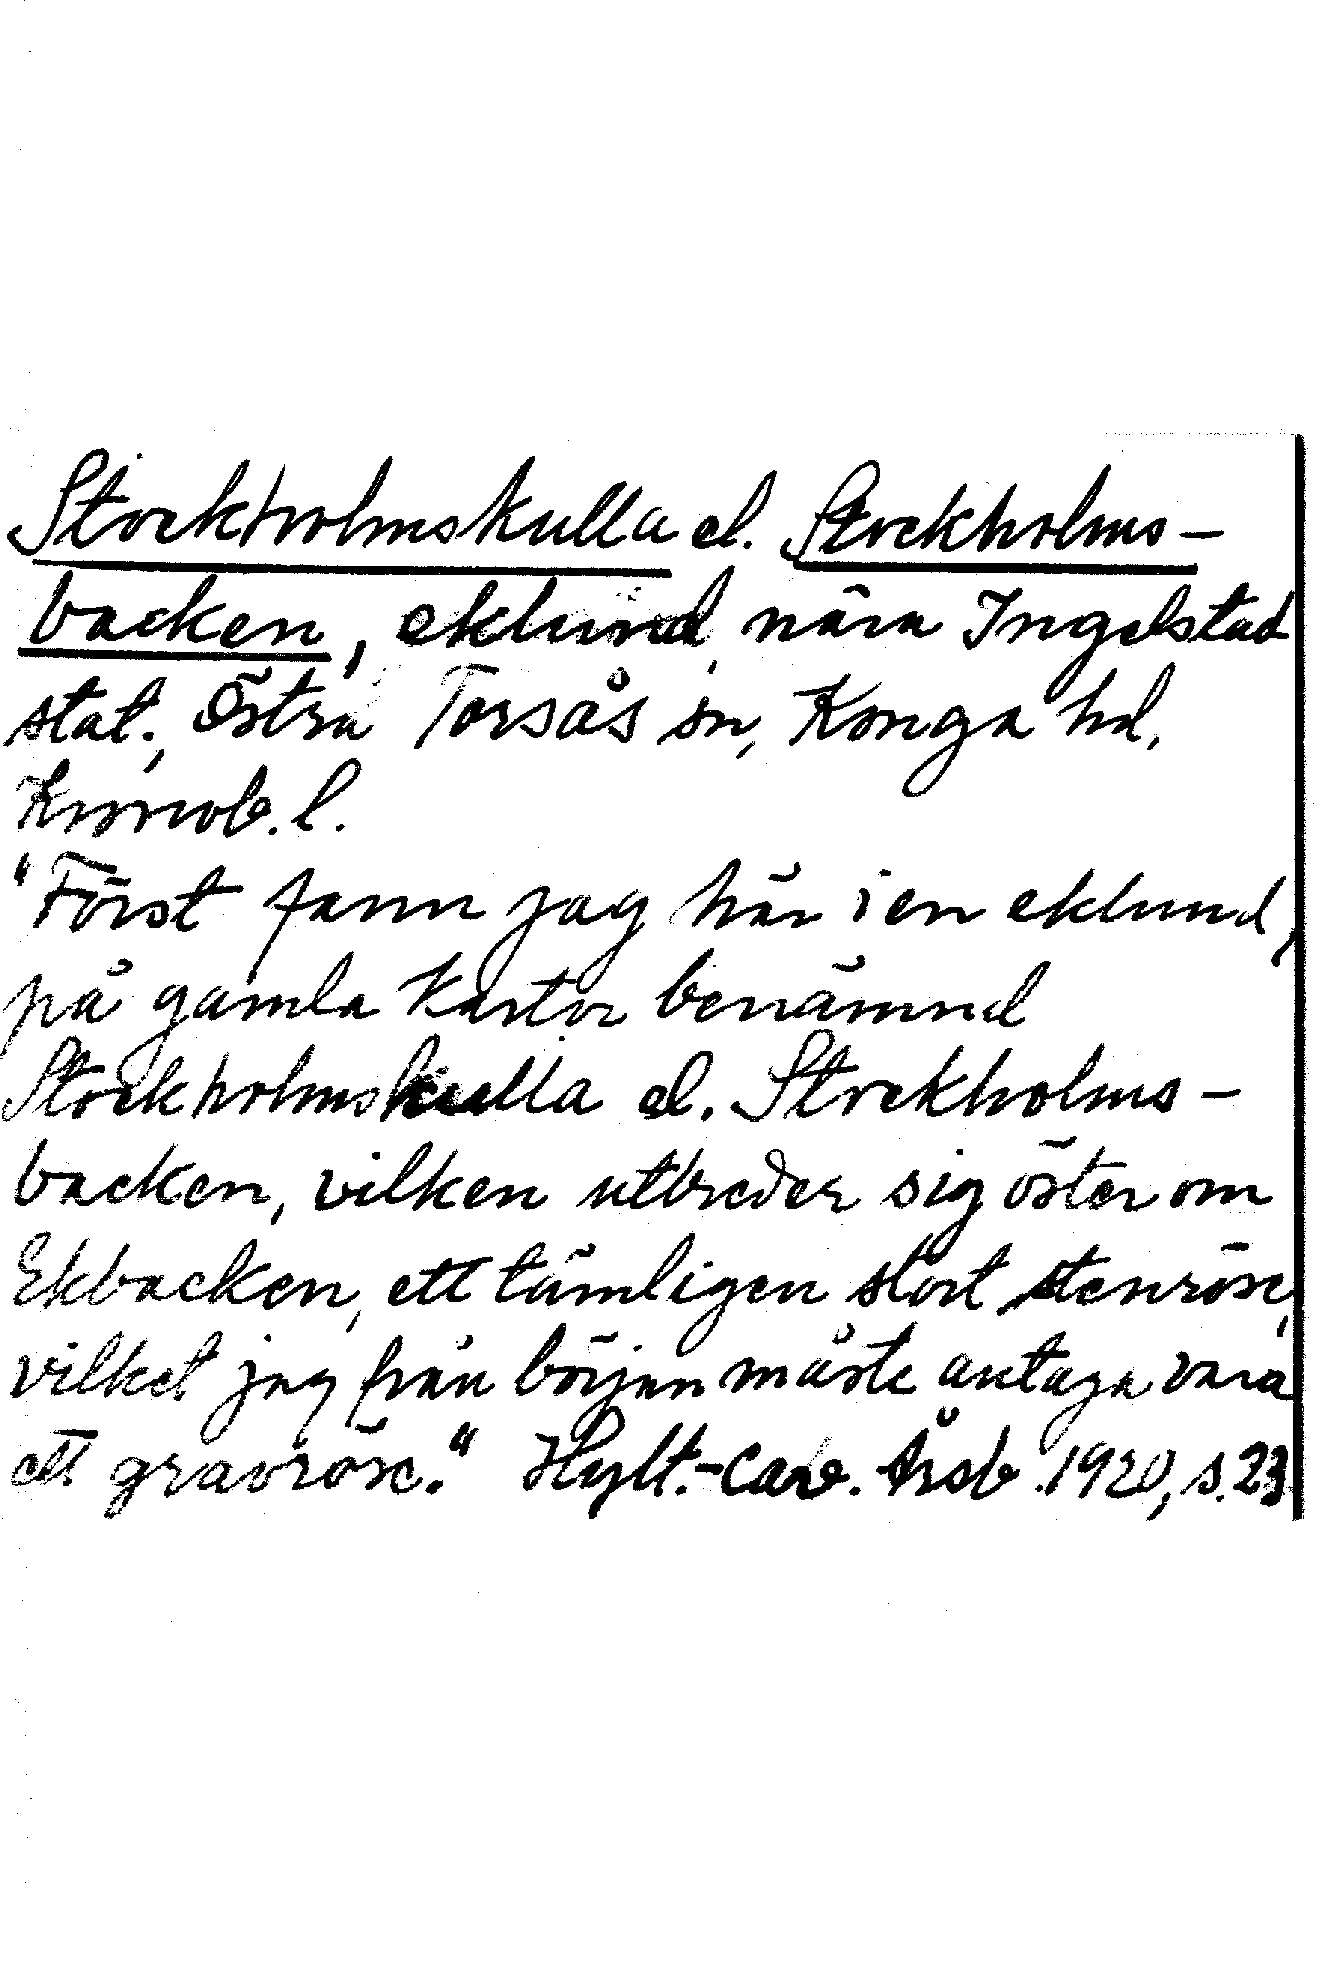 Stockholmskulla el. Stockholms-
backen, eklund, nära Ingelstad
stat., Östra Torsås sn, Konga hd,
Kronob. l.
"Först fann jag här i en eklund,
på gamla kartor benämnd
Stockholmskulla el. Stockholms-
backen, vilken utbreder sig öster om
Ekbacken, ett tämligen stort stenröse,
vilket jag från början måste antaga vara
ett gravröse." Hylt.-Cav. Årsb. 1920, s. 23